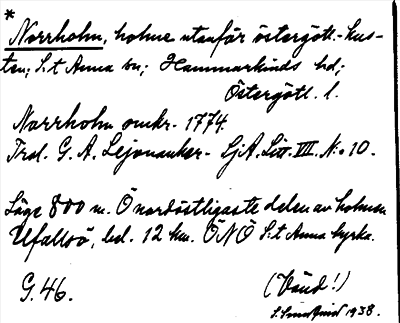 *
Norrholm, holme utanför östergötl.-kus-
ten; S:t Anna sn; Hammarkinds hd;
Östergötl. l.
Norrholm omkr. 1774.
Trol. G. A. Lejonanker - SjA. Litt. VIII. No 10.
Läge 800 m. Ö nordöstligaste delen av holmen
Ufallsö, bel. 12 km. ÖNÖ S:t Anna kyrka.
G. 46.
(Vänd!)
1938.